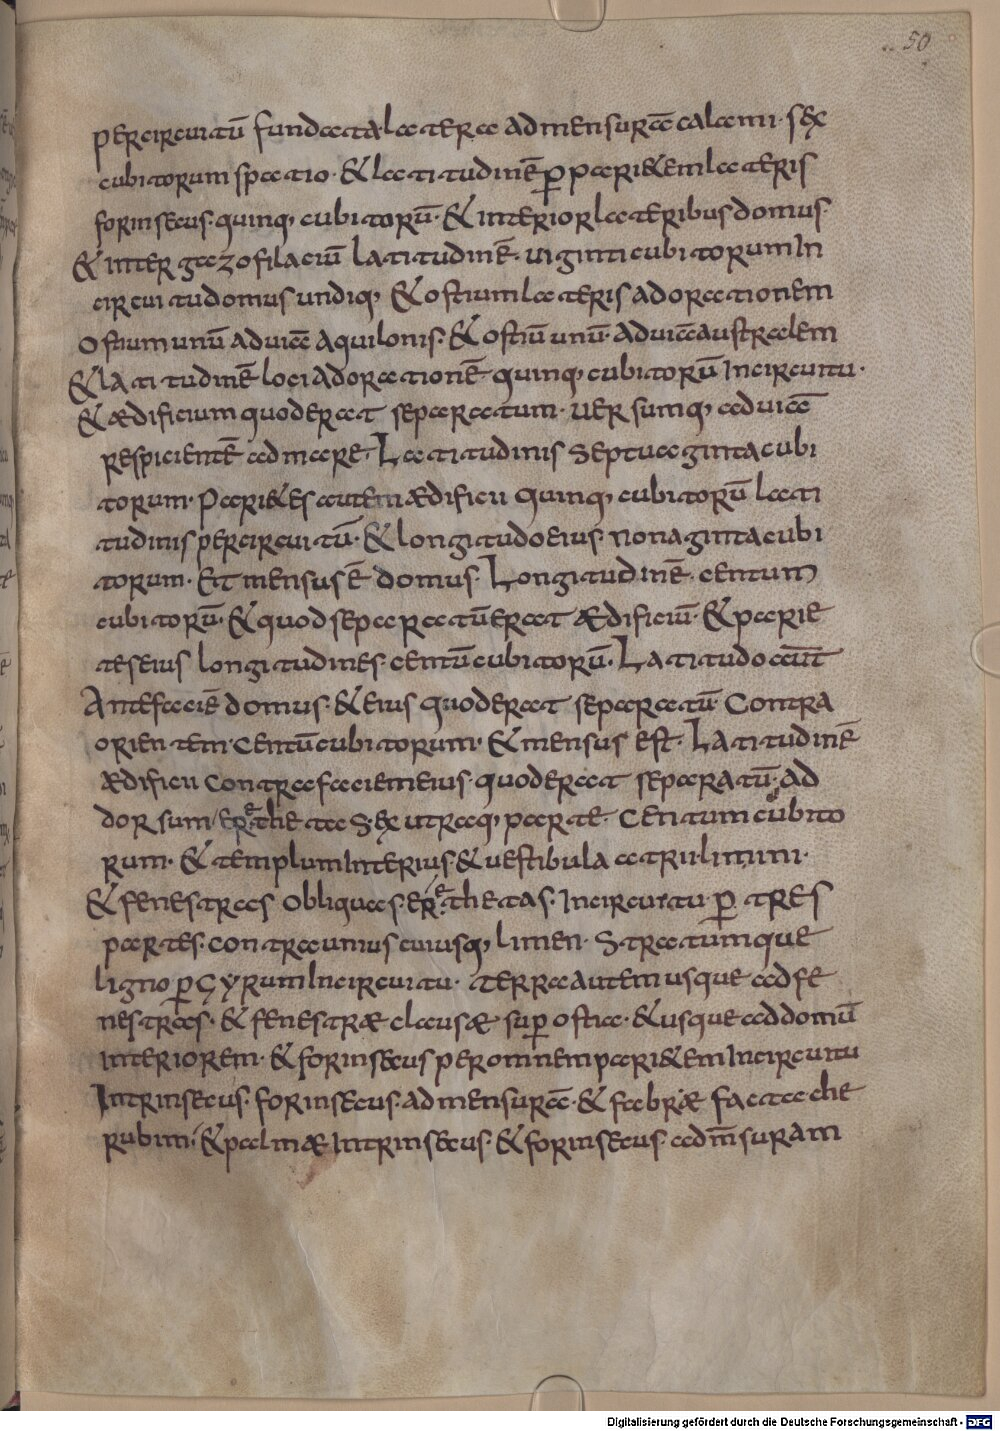 50
percircuitū fundata latera ad mensurā calami· sex
cubitorum spatio· & latitudinē p̲ pari&em lateris
forinsecus· quinq; cubitorū· & interior lateribus domus·
& inter gazofilaciū latitudinē· uiginti cubitorum In
circuitu domus undiq; & ostium lateris ad orationem
Ostium unū ad uiā aquilonis· & ostiū unū· ad uiā australem
& latitudinē loci ad orationē quinq; cubitorū Incircuitu·
& ædificium quod erat separatum· uersumq; ad uiā
respicientē ad mare· Latitudinis septuaginta cubi
torum· Pari&es autem ædificii quinq; cubitorū lati
tudinis percircuitū· & longitudo eius· nonaginta cubi
torum· Et mensus ē domus· Longitudinē· centum
cubitorū· & quod separatū erat ædificiū· & parie
tes eius longitudines· centū cubitorū· Latitudo aūt
Ante faciē domus· & eius quod erat separatū· Contra
orientem· centū cubitorum· & mensus est· Latitudinē
ædificii contra faciem eius· quod erat separatū· ad
dorsum· ethetas· Ex utraq; parte· Centum cubito
rum· & templum Interius· & uestibula atrii· limini·
& fenestras obliquas· & ethetas· Incircuitu· p̲ tres
partes· contra unius cuiusq; limen· Stratumque
ligno p̲ gyrum Incircuitu· terra autem usque ad fe
nestras· & fenestræ clausæ sup̲ ostia· & usque ad domū
interiorem· & forinsecus per omnem pari&em Incircuitu
Intrinsecus· forinsecus· ad mensurā· & fabræ facta che
rubim· & palmæ Intrinsecus· & forinsecus ad m̄suram
Digitalisierung gefördert durch die Deutsche Forschungsgemeinschaft - DFG